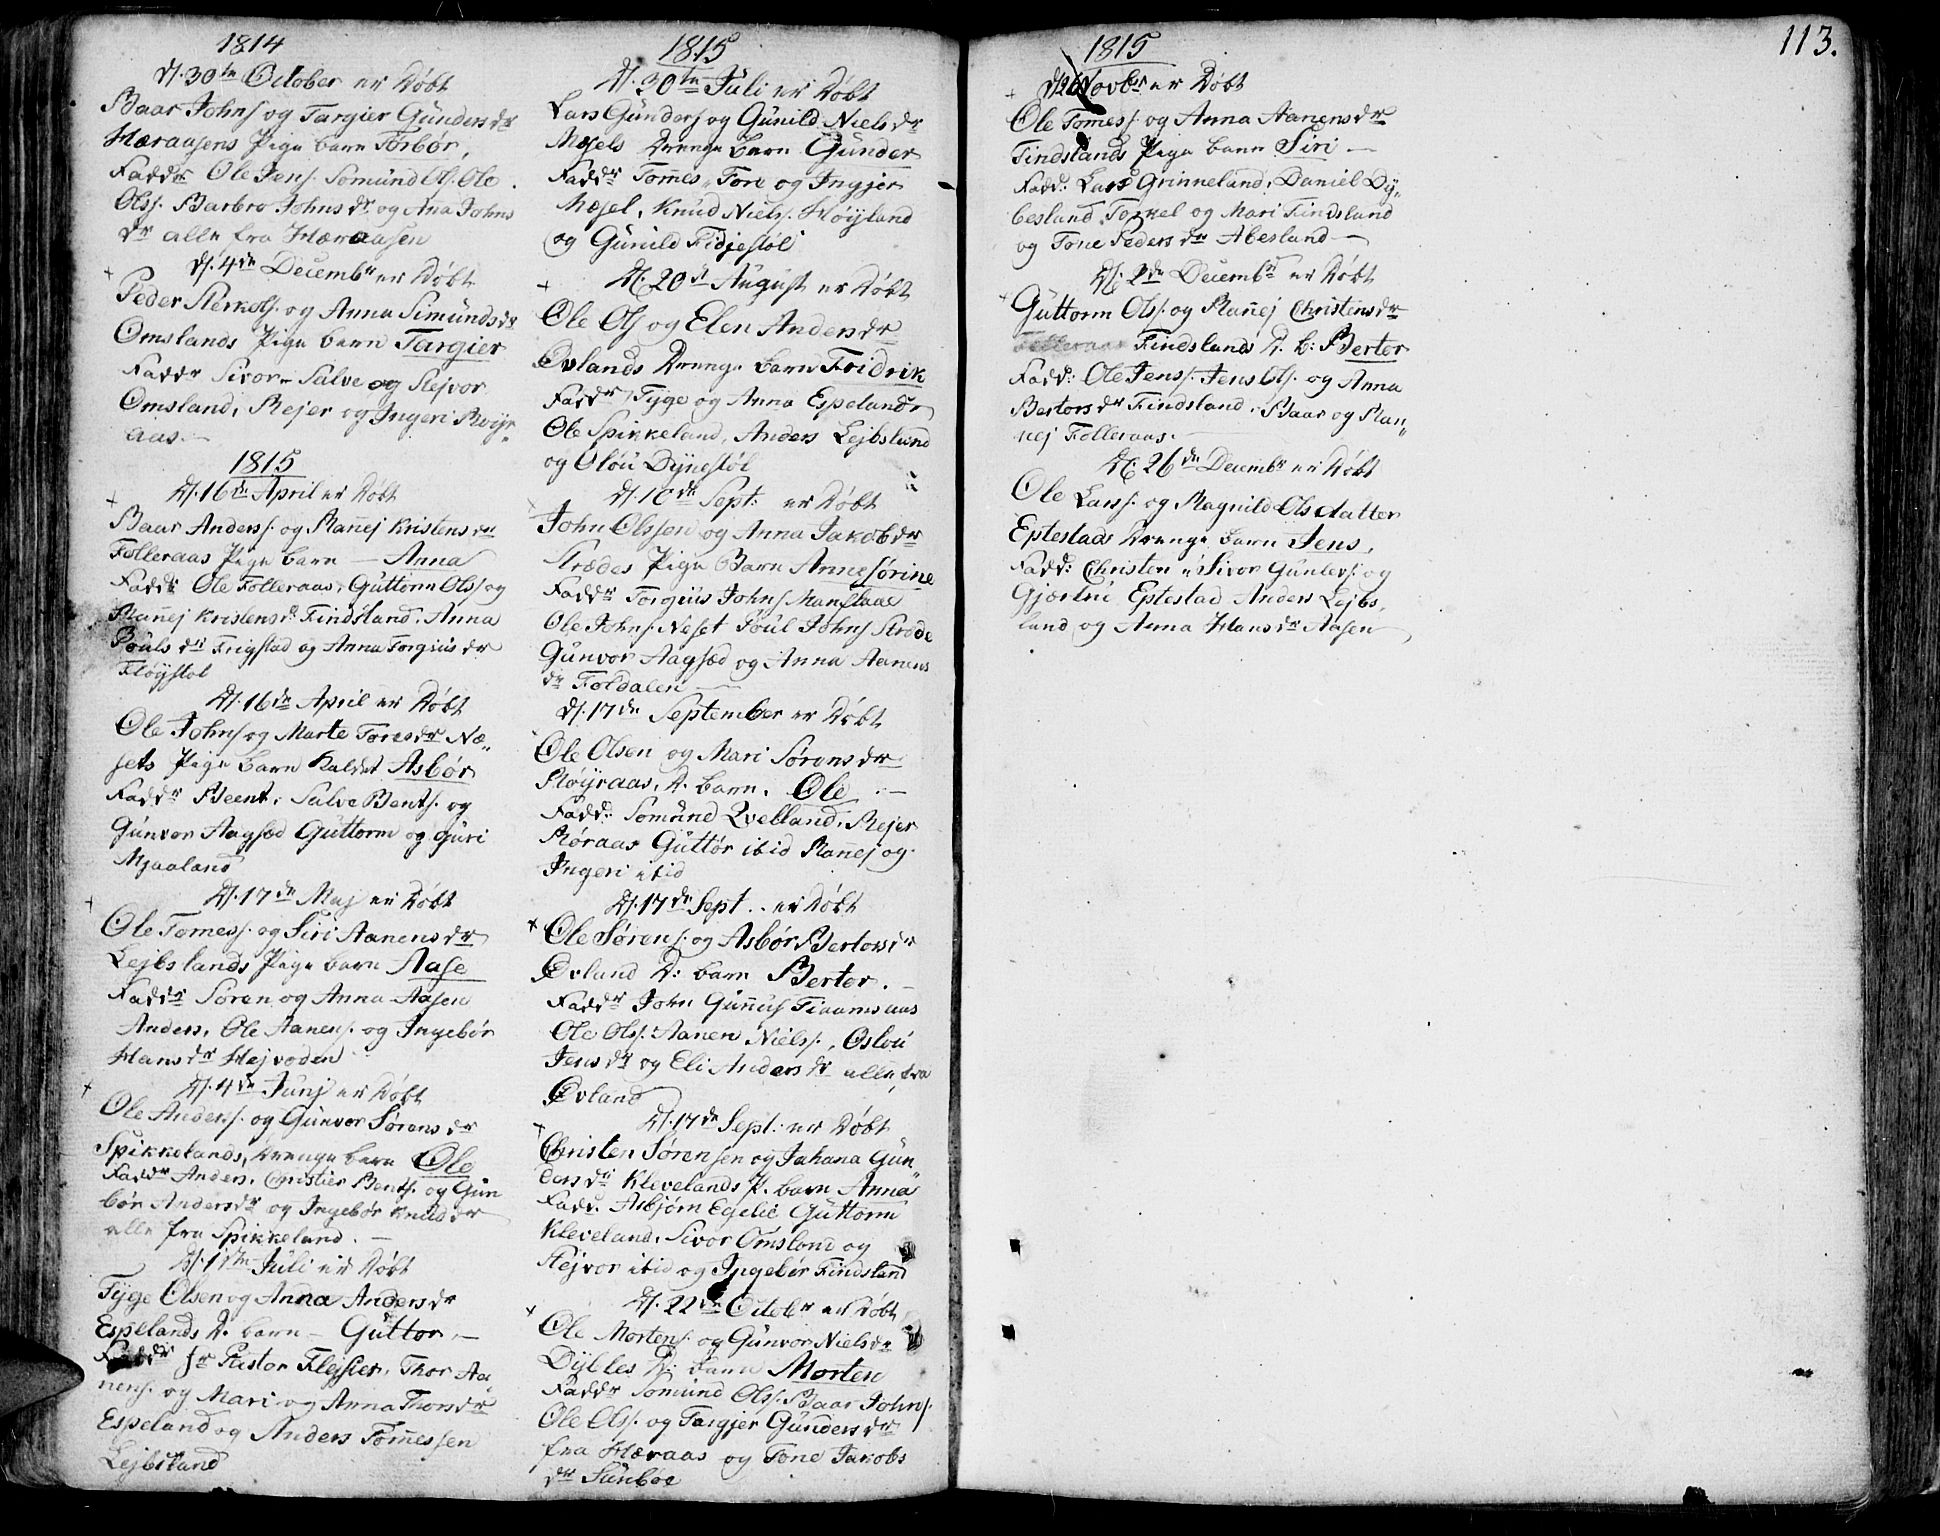 1814
d. 30te October er Døbt
Baar Johns og Targier Gunders dr
Hæraasens Pige barn Tosbør,
Faddr Ole Jens. Somund Ols. Ole
Olss. Barbro Johns dr og Ana Johns
dr alle fra Hæraasen
d. 4de Decembr er Døbt
Peder Sterkols. og Anna Simunds dr
Omslands Pige barn Targier
Faddr Sivor, Salve og Slejvor
Omsland, Rejer og Ingeri Røijr„
aas.
1815
d. 16de April er Døbt
Baar Anderss. og Rannej Kristens dr
Folleraas Pige barn — Anna
Faddr Ole Folleraas, Guttorm Olss og
Rannej Kristensdr Findsland. Anna
Pouls dr Frigstad og Anna Torgius dr
Fløystol
d. 16de April er Døbt
Ole Johns og Marte Tores dr Næ„
sets Pige barn Kaldet Asbør
Faddr Beent, Salve Bents. og
Gunvor Aagsæd Guttorm og Guri
Mjaaland
d. 17de Maj er Døbt
Ole Tomess. og Siri Aanens dr
Lejbslands Pige barn Aase
Faddr Søren og Anna Aasen
Anders, Ole Aanens. og Ingebør
Hans dr Hejvoden
d. 4de Junj er Døbt
Ole Anders. og Gunvor Sørens dr
Spikkelands, Drenge barn Ole
Faddr Anders, Christier Bents. og Gun
bør Anders dr og Ingebør Knuds dr
alle fra Spikkeland. —
d. 17te Juli er Døbt
Tyge Olsen og Anna Anders dr
Espelands D. barn — Guttor. —
Faddr Hr Pastor Flejssier, Thor Aa„
nens. og Mari og Anna Thors dr
Espeland og Anders Tomessen
Lejbsland
1815
d. 30te Juli er Døbt
Lars Gunders og Gunild Niels dr
Mæsels Drenge barn Gunder
Faddr Tomes, Tore og Ingjer
Mæsel, Knud Niels. Høijland
og Gunild Fidjestøl
d. 20de August er Døbt
Ole Ols og Elen Anders dr
Øvlands Drenge barn Fridrik
Faddr Tyge og Anna Espeland
Ole Spikkeland, Anders Lejbsland
og Oløu Dynestøl
d. 10de Sept: er Døbt
John Olssen og Anna Jakobs dr
Strædes Pige Barn Anne Sørine
Faddr Torgius Johns Manflaae
Ole Johns. Neset Poul Johns Stræde
Gunvor Aagsæd og Anna Aanens
dr Foldalen —
d. 17de September er Døbt
Ole Olsen og Mari Sørens dr
Røyraas, D. barn. Ole. —
Fadd: Somund Qvelland, Rejer
Røraas Guttør ibid Rannej og
Ingeri ibid
d. 17de Sept. er Døbt
Ole Sørens. og Asbør Bertors dr
Øvland D: barn Berter. —
Faddr John Gunnus Tiaamsaas
Ole Olss. Aanen Nielss., Oslou
Jens dr og Eli Anders dr alle fra
Øvland
d. 17de Sept. er Døbt
Christen Sørensen og Jahana Gun„
ders dr Klevelands P. barn Anna
Fadd. Asbjørn Egelie Guttorm
Kleveland, Sivor Omsland og
Slejvor ibid og Ingebør Findsland
d. 22de Octobr er Døbt
Ole Mortens. og Gunvor Niels dr
Dybles D: barn Morten
Faddr Somund Olss. Baar Johns.
Ole Olss. og Targjer Gunders dr
fra Hæraas og Tone Jakobs
dr Sunbøe
113.
1815
d. 26 Novbr er Døbt
Ole Tomess. og Anna Aanens dr
Findslands Pige barn Siri —
Fadd: Lars Grinneland, Daniel Dy„
besland Torkel og Mari Findsland
og Tone Peders dr Abesland —
d. 2de Decembr er Døbt
Guttorm Olss. og Rannej Christens dr
Folleraas Findslands D. b: Berter
Fadd: Ole Jenss. Jens Ols. og Anna
Bertors dr Findsland. Baar og Ran„
nej Folleraas. —
d. 26de Decembr er Døbt
Ole Larss. og Ragnild Olsdatter
Eptestads Drenge barn Jens,
Fadd: Christen, Sivor Gunlevs. og
Gjærtru Eptestad Anders Lejbs,
land og Anna Hans dr Aasen